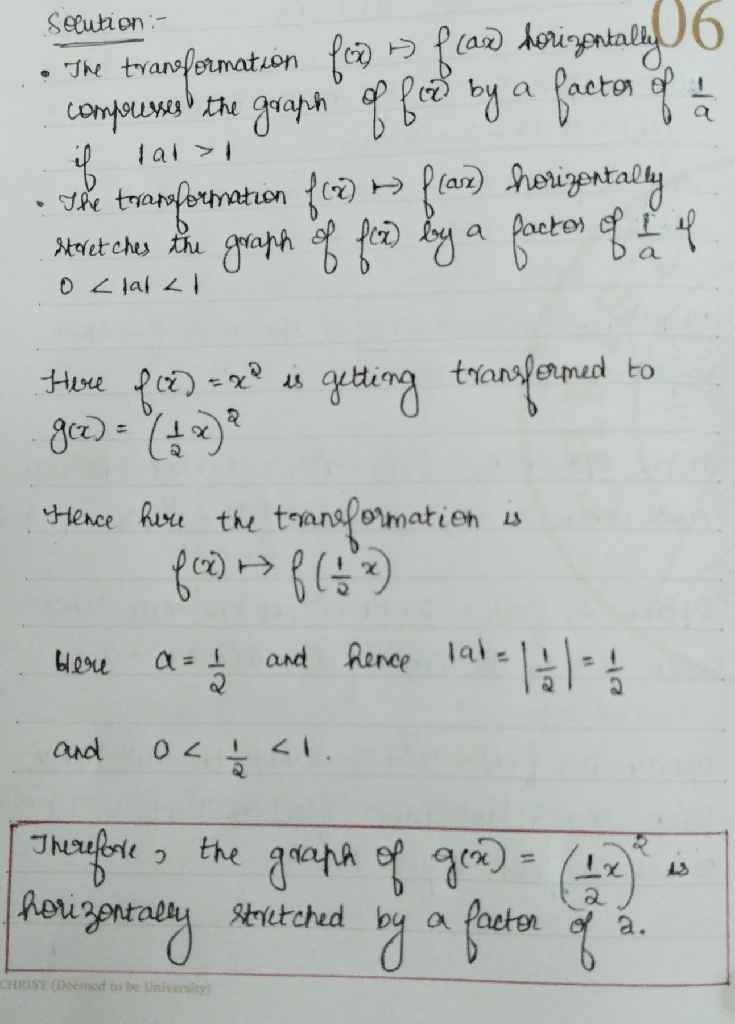 Solution:-
06
• The transformation f(x) ↦ f(ax) horizontally
compresses the graph of f(x) by a factor of 1/a
if |a| > 1
• The transformation f(x) ↦ f(ax) horizontally
stretches the graph of f(x) by a factor of 1/a if
0 < |a| < 1
Here f(x) = x² is getting transformed to
g(x) = (1/2 x)²
Hence here the transformation is
f(x) ↦ f(1/2 x)
Here a = 1/2 and hence |a| = |1/2| = 1/2
and 0 < 1/2 < 1.
Therefore, the graph of g(x) = (1/2 x)² is
horizontally stretched by a factor of 2.
CHRIST (Deemed to be University)